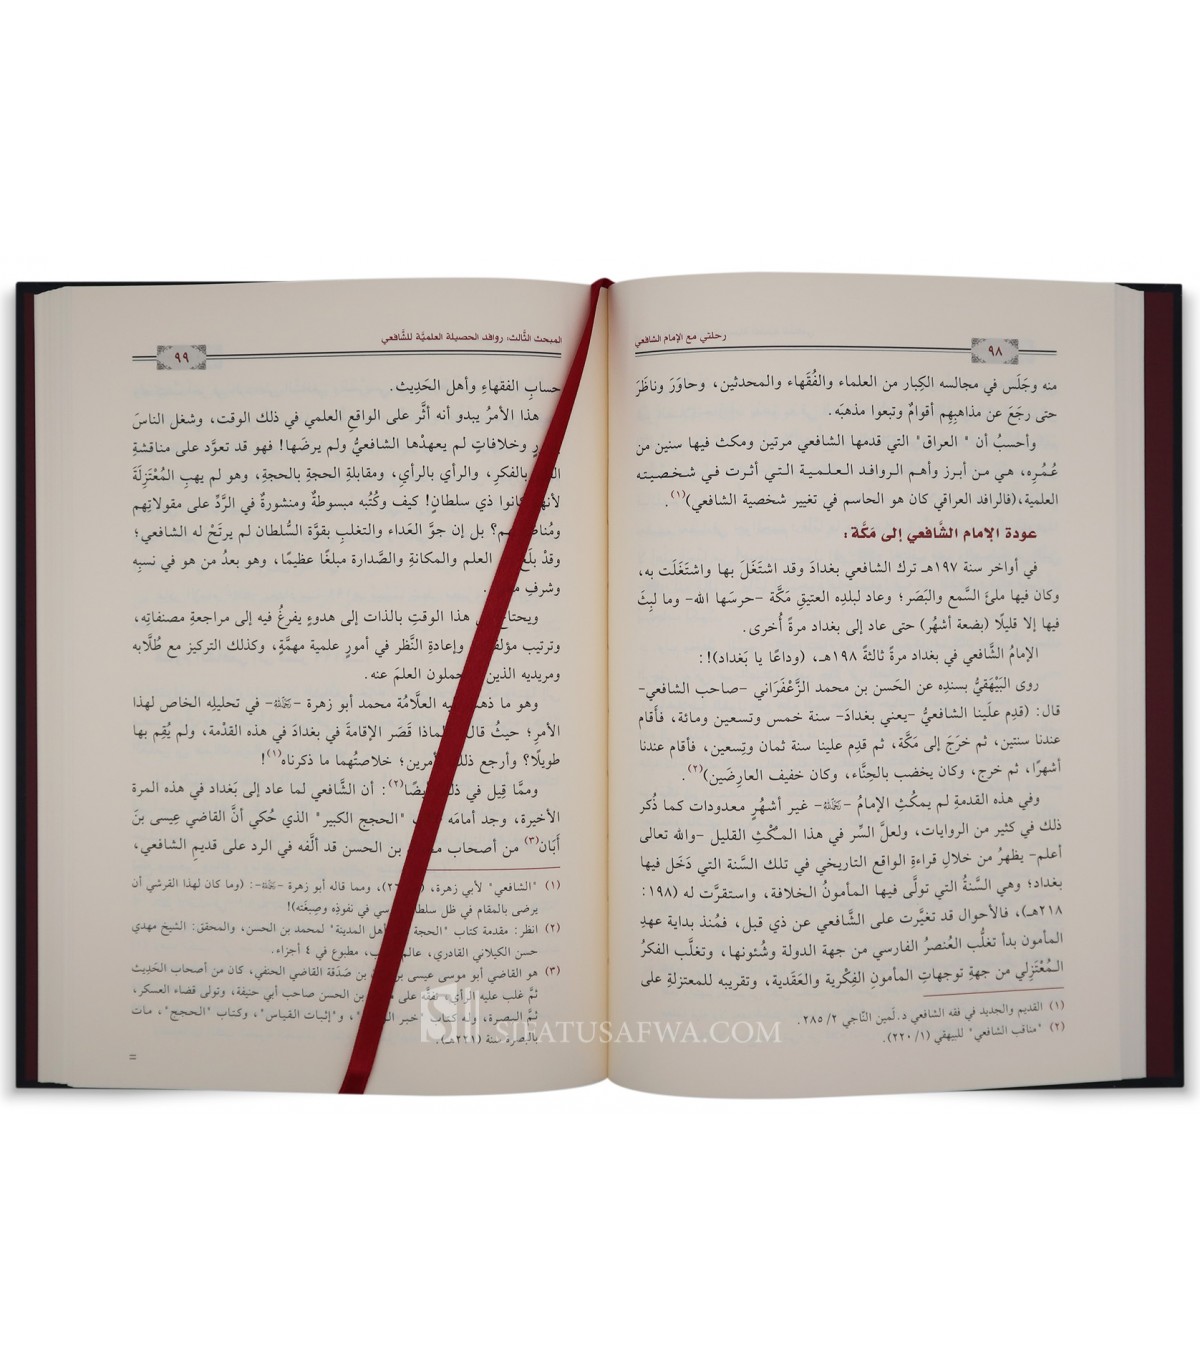 رحلتي مع الإمام الشافعي
٩٨
منه وجَلَس في مجالسه الكِبار من العلماء والفُقَهاء والمحدثين، وحاوَرَ وناظَرَ
حتى رجَعَ عن مذاهبِهِم أقوامٌ وتبعوا مذهبَه.
وأحسبُ أن "العراق" التي قدمها الشافعي مرتين ومكث فيها سنين من
عُمُره، هي من أبرز وأهم الروافد العلمية التي أثرت في شخصيته
العلمية،(فالرافد العراقي كان هو الحاسم في تغيير شخصية الشافعي)(١).
عودة الإمام الشَّافعي إلى مَكَّة:
في أواخر سنة ١٩٧هـ ترك الشافعي بغدادَ وقد اشتَغَلَ بها واشتَغَلَت به،
وكان فيها ملئَ السَّمع والبَصَر؛ وعاد لبلدِه العتيقِ مَكَّة -حرسَها الله- وما لبِثَ
فيها إلا قليلًا (بضعة أشهُر) حتى عاد إلى بغداد مرةً أُخرى.
الإمامُ الشَّافعي في بغداد مرةً ثالثةً ١٩٨هـ، (وداعًا يا بَغداد)!:
روى البَيْهَقيُّ بسندِه عن الحَسن بن محمد الزَّعْفَرَاني -صاحب الشافعي-
قال: (قدِم علَينا الشافعيُّ -يعني بغدادَ- سنة خمس وتسعين ومائة، فأَقام
عندنا سنتين، ثم خرَجَ إلى مَكَّة، ثم قدِم علينا سنة ثمان وتِسعين، فأقام عندنا
أشهرًا، ثم خرج، وكان يخضب بالحِنَّاء، وكان خفيف العارِضَين)(٢).
وفي هذه القدمةِ لم يمكُثِ الإمامُ -رَحِمَهُ اللهُ- غير أشهُرٍ معدودات كما ذُكر
ذلك في كثير من الروايات، ولعلَّ السِّر في هذا المكْثِ القليل -والله تعالى
أعلم- يظهرُ من خلالِ قراءةِ الواقع التاريخي في تلك السَّنة التي دَخَل فيها
بغداد؛ وهي السَّنةُ التي تولَّى فيها المأمونُ الخلافة، واستقرَّت له (١٩٨:
٢١٨هـ)، فالأحوال قد تغيَّرت على الشَّافعي عن ذي قبل، فمُنذ بداية عهدِ
المأمون بدأ تغلُّب العُنصرُ الفارسي من جهة الدولة وشُئونها، وتغلَّب الفكرُ
المُعْتَزِلي من جهةِ توجهاتِ المأمونِ الفِكْرية والعَقَدية، وتقريبه للمعتزلةِ على
(١) القديم والجديد في فقه الشافعي د.لَمين النّاجي ٢٨٥/٢.
(٢) "مناقب الشافعي" للبيهقي (٢٢٠/١).
المبحث الثَّالث: روافد الحصيلة العلميَّة للشَّافعي
٩٩
حسابِ الفقهاءِ وأهل الحَدِيث.
هذا الأمرُ يبدو أنه أثَّر على الواقعِ العلمي في ذلك الوقت، وشغل الناسَ
وخلافاتٍ لم يعهدْها الشافعيُّ ولم يرضَها! فهو قد تعوَّد على مناقشةِ
بالفكرِ، والرأي بالرأيِ، ومقابلةِ الحجةِ بالحجةِ، وهو لم يهبِ المُعْتَزِلَةَ
كانوا ذي سلطانٍ! كيف وكُتُبه مبسوطةٌ ومنشورةٌ في الردِّ على مقولاتِهم
بل إن جوَّ العَداء والتغلبِ بقوَّة السُّلطان لم يرتَحْ له الشافعي؛
وقدْ العلم والمكانةِ والصَّدارة مبلغًا عظيمًا، وهو بعدُ من هو في نسبِه
وشرفِ
هذا الوقتِ بالذات إلى هدوءٍ يفرغُ فيه إلى مراجعةِ مصنفاتِه،
وترتيب وإعادةِ النَّظر في أمورٍ علمية مهمَّةٍ، وكذلك التركيز مع طُلَّابه
ومريديه الذين يحملون العلمَ عنه.
وهو ما العلَّامُة محمد أبو زهرة -رَحِمَهُ اللهُ- في تحليلِه الخاص لهذا
الأمرِ؛ حيثُ قال لماذا قَصَر الإقامة في بغدادَ في هذه القدْمة، ولم يُقِم بها
طويلًا؟ وأرجع ذلك لأمرين؛ خلاصتُهما ما ذكرناه(١)!
وممَّا قِيل في ذلك أيضًا(٢): أن الشَّافعي لما عاد إلى بَغداد في هذه المرة
الأخيرة، وجد أمامَه كتاب "الحجج الكبير" الذي حُكي أنَّ القاضي عِيسى بنَ
أبَان(٣) من أصحاب محمد بن الحسن قد ألَّفه في الرد على قديمِ الشافعي،
(١) "الشافعي" لأبي زهرة، ومما قاله أبو زهرة -رَحِمَهُ اللهُ-: (وما كان لهذا القرشي أن
يرضى بالمقام في ظل سلطان فارسي في نفوذِه وصِبغَته)!
(٢) انظر: مقدمة كتاب "الحجة على أهل المدينة" لمحمد بن الحسن، والمحقق: الشيخ مهدي
حسن الكيلاني القادري، عالم الكتب، مطبوع في ٤ أجزاء.
(٣) هو القاضي أبو موسى عيسى بن أبان بن صَدَقة القاضي الحنفي، كان من أصحاب الحَدِيث
ثمَّ غلب عليه الرأي، تفقه على محمد بن الحسن صاحب أبي حنيفة، وتولى قضاء العسكر،
ثمَّ البصرة، وله كتاب "خبر الواحد"، و"إثبات القياس"، وكتاب "الحجج"، مات
بالبصرة سنة (٢٢١هـ).
=
SIFATUSAFWA.COM